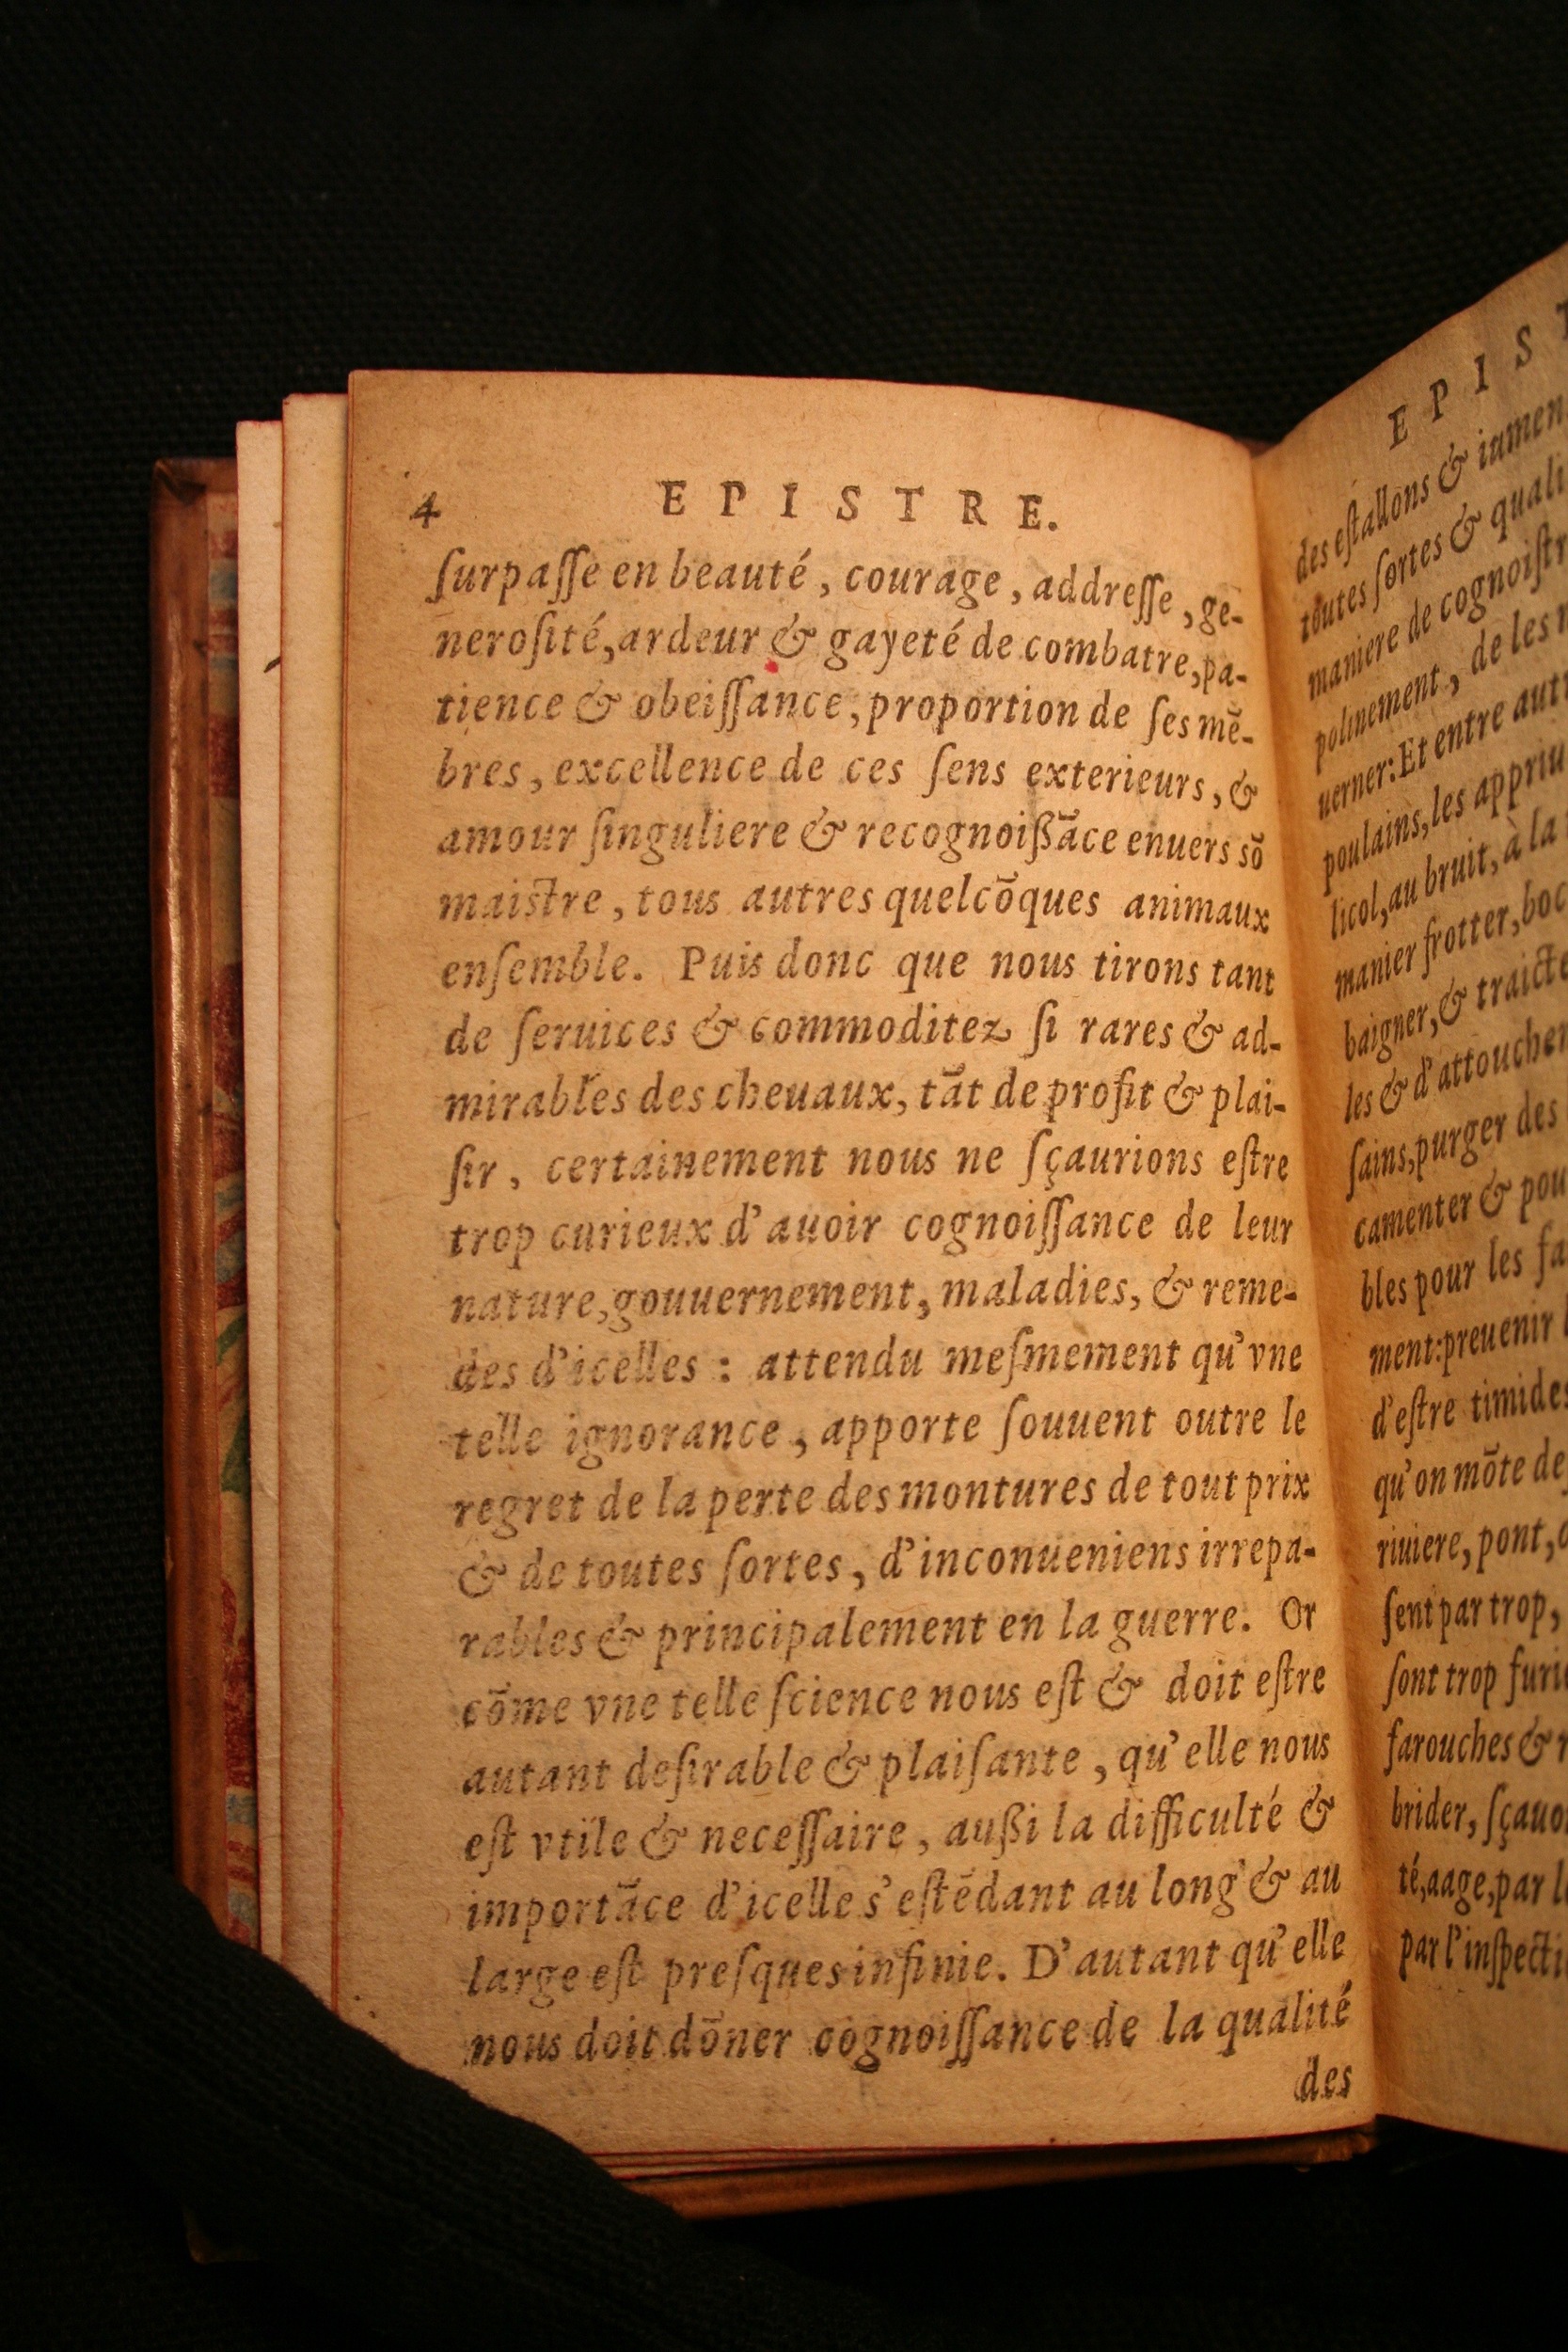 4 EPISTRE.
ſurpaſſe en beauté, courage, addreſſe, ge-
neroſité, ardeur & gayeté de combatre, pa-
tience & obeiſſance, proportion de ſes mē-
bres, excellence de ces ſens exterieurs, &
amour ſinguliere & recognoißāce enuers sō
maistre, tous autres quelcōques animaux
enſemble. Puis donc que nous tirons tant
de ſeruices & commoditez ſi rares & ad-
mirables des cheuaux, tāt de profit & plai-
ſir, certainement nous ne ſçaurions eſtre
trop curieux d'auoir cognoiſſance de leur
nature, gouuernement, maladies, & reme-
des d'icelles : attendu meſmement qu'vne
telle ignorance, apporte ſouuent outre le
regret de la perte des montures de tout prix
& de toutes ſortes, d'inconueniens irrepa-
rables & principalement en la guerre. Or
cōme vne telle ſcience nous eſt & doit eſtre
autant deſirable & plaiſante, qu'elle nous
eſt vtile & neceſſaire, außi la difficulté &
importāce d'icelle s'eſtēdant au long & au
large eſt preſques infinie. D'autant qu'elle
nous doit dōner cognoiſſance de la qualité
des
EPIS
des eſtallons & iumen
toutes ſortes & quali
maniere de cognoiſtr
polinement, de les
uerner: Et entre autr
poulains, les appriu
licol, au bruit, à la
manier frotter, boc
baigner, & traicte
les & d'attoucher
ſains, purger des
camenter & pou
bles pour les fa
ment: preuenir
d'eſtre timides
qu'on mōte de
riuiere, pont,
ſent par trop,
ſont trop furi
farouches &
brider, ſçauo
té, aage, par
par l'inſpecti